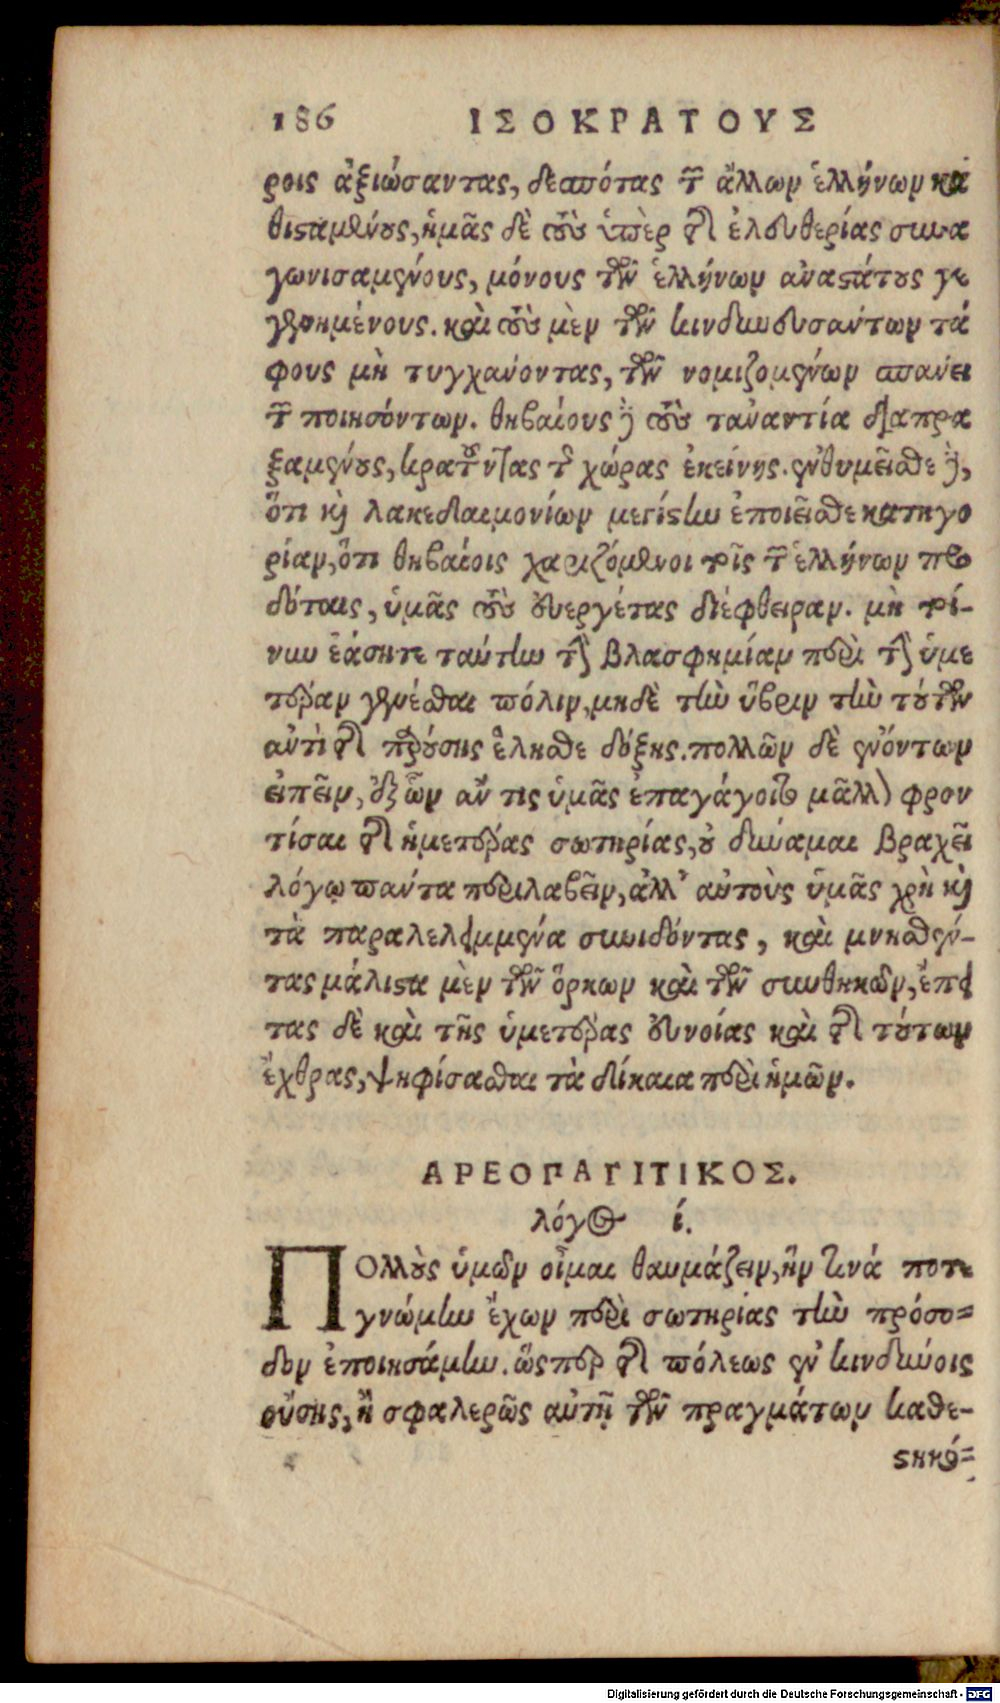 186 ΙΣΟΚΡΑΤΟΥΣ
ροις ἀξιώσαντας, δεσπότας τῶν ἄλλων ἑλλήνων κα
θισαμένους, ἡμᾶς δὲ τοὺς ὑπὲρ τῆς ἐλευθερίας συνα
γωνισαμένους, μόνους τῶν ἑλλήνων ἀναστάτους γε
γενημένους. καὶ τοὺς μὲν τῶν κινδυνευσάντων τά
φους μὴ τυγχάνοντας, τῶν νομιζομένων σπάνει
τῶν ποιησόντων. θηβαίους δὲ τοὺς τἀναντία διαπρα
ξαμένους, κρατοῦντας τῆς χώρας ἐκείνης. ἐνθυμεῖσθε δὲ,
ὅτι καὶ λακεδαιμονίων μεγίστην ἐποιεῖσθε κατηγο
ρίαν, ὅτι θηβαίοις χαριζόμενοι τοῖς τῶν ἑλλήνων προ
δόταις, ὑμᾶς τοὺς εὐεργέτας διέφθειραν. μὴ τοί-
νυν ἐάσητε ταύτην τὴν βλασφημίαν περὶ τὴν ὑμε
τέραν γενέσθαι πόλιν, μηδὲ τὴν ὕβριν τὴν τούτων
ἀντὶ τῆς παρούσης ἕλησθε δόξης. πολλῶν δὲ ἐνόντων
εἰπεῖν, ἐξ ὧν ἄν τις ὑμᾶς ἐπαγάγοιτο μᾶλλον φρον
τίσαι τῆς ἡμετέρας σωτηρίας, οὐ δύναμαι βραχεῖ
λόγῳ πάντα περιλαβεῖν, ἀλλ' αὐτοὺς ὑμᾶς χρὴ καὶ
τὰ παραλελειμμένα συνιδόντας, καὶ μνησθέν-
τας μάλιστα μὲν τῶν ὅρκων καὶ τῶν συνθηκῶν, ἔπει
τας δὲ καὶ τῆς ὑμετέρας εὐνοίας καὶ τῆς τούτων
ἔχθρας, ψηφίσασθαι τὰ δίκαια περὶ ἡμῶν.
ΑΡΕΟΠΑΓΙΤΙΚΟΣ.
λόγος ί.
ΠΟλλοὺς ὑμῶν οἶμαι θαυμάζειν, ἥν τινά ποτε
γνώμην ἔχων περὶ σωτηρίας τὴν πρόσο-
δον ἐποιησάμην. ὥσπερ τῆς πόλεως ἐν κινδύνοις
οὔσης, ἢ σφαλερῶς αὐτῇ τῶν πραγμάτων καθε-
στηκό-
Digitalisierung gefördert durch die Deutsche Forschungsgemeinschaft - DFG